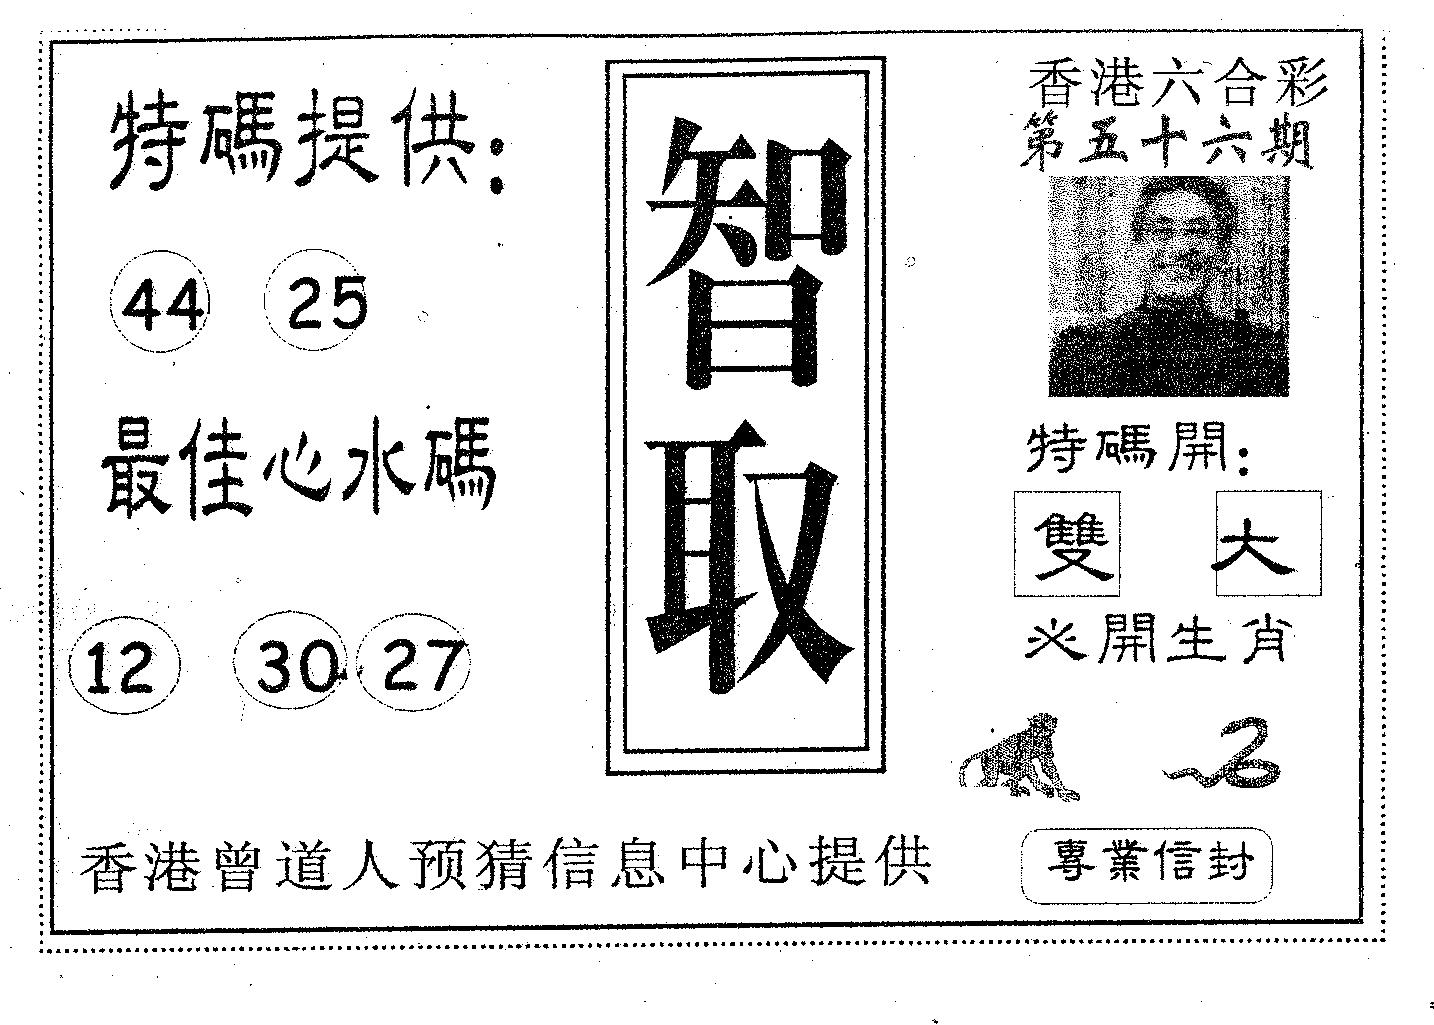 特碼提供：
44 25
最佳心水碼
12 30 27
智取
香港六合彩
第五十六期
特碼開：
雙 大
必開生肖
香港曾道人预猜信息中心提供
專業信封